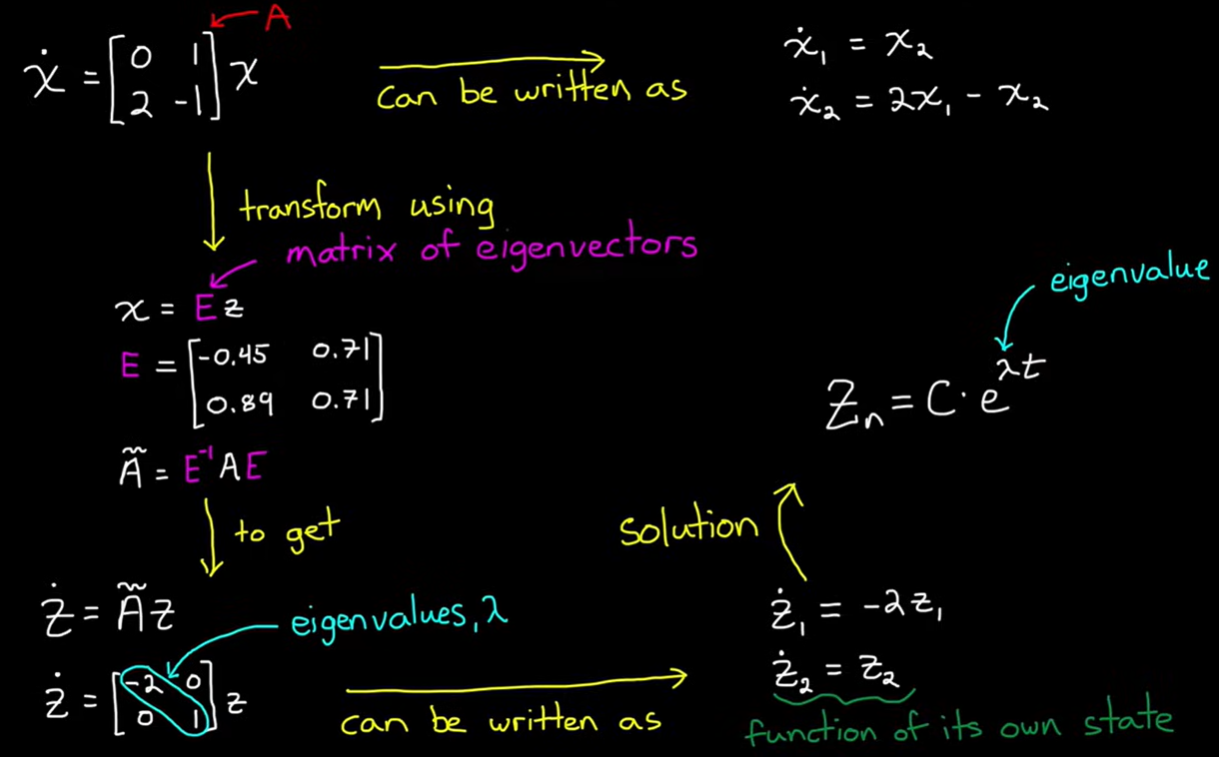 A
ẋ = [0 1; 2 -1] x
can be written as
ẋ₁ = x₂
ẋ₂ = 2x₁ - x₂
transform using
matrix of eigenvectors
x = Ez
E = [-0.45 0.71; 0.89 0.71]
Ã = E⁻¹AE
to get
ż = Ãz
eigenvalues, λ
ż = [-2 0; 0 1] z
can be written as
ż₁ = -2z₁
ż₂ = z₂
function of its own state
solution
Zₙ = C · e^λt
eigenvalue